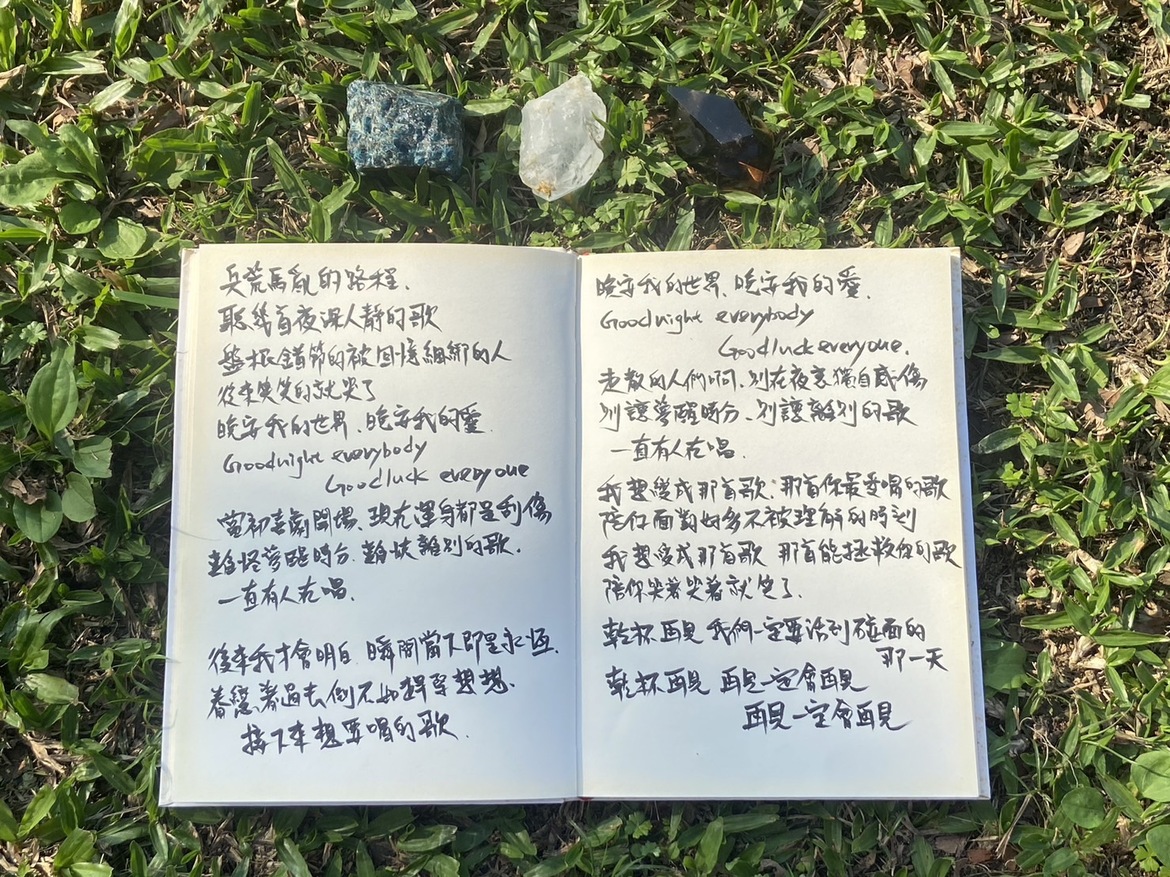 兵荒馬亂的路程、
聽幾首夜深人靜的歌
盤根錯節的被回憶綑綁的人
後來笑笑的就哭了
晚安我的世界、晚安我的愛
Goodnight everybody
Goodluck everyone
當初喜劇開場、現在渾身都是刺傷
難怪夢醒時分、離別的歌、
一直有人在唱、
後來我才會明白 瞬間當下即是永恆、
眷戀著過去倒不如趕緊想想、
接下來想要唱的歌、
晚安我的世界、晚安我的愛、
Goodnight everybody
Goodluck everyone、
走散的人們啊、別在夜裏獨自感傷
別讓夢醒時分、別讓離別的歌
一直有人在唱、
我想變成那首歌、那首你最愛唱的歌
陪你面對好多不被理解的時刻
我想變成那首歌 那首能拯救你的歌
陪你哭著哭著就笑了、
乾杯再見 我們一定要活到碰面的
那一天
乾杯再見 再見一定會再見
再見一定會再見